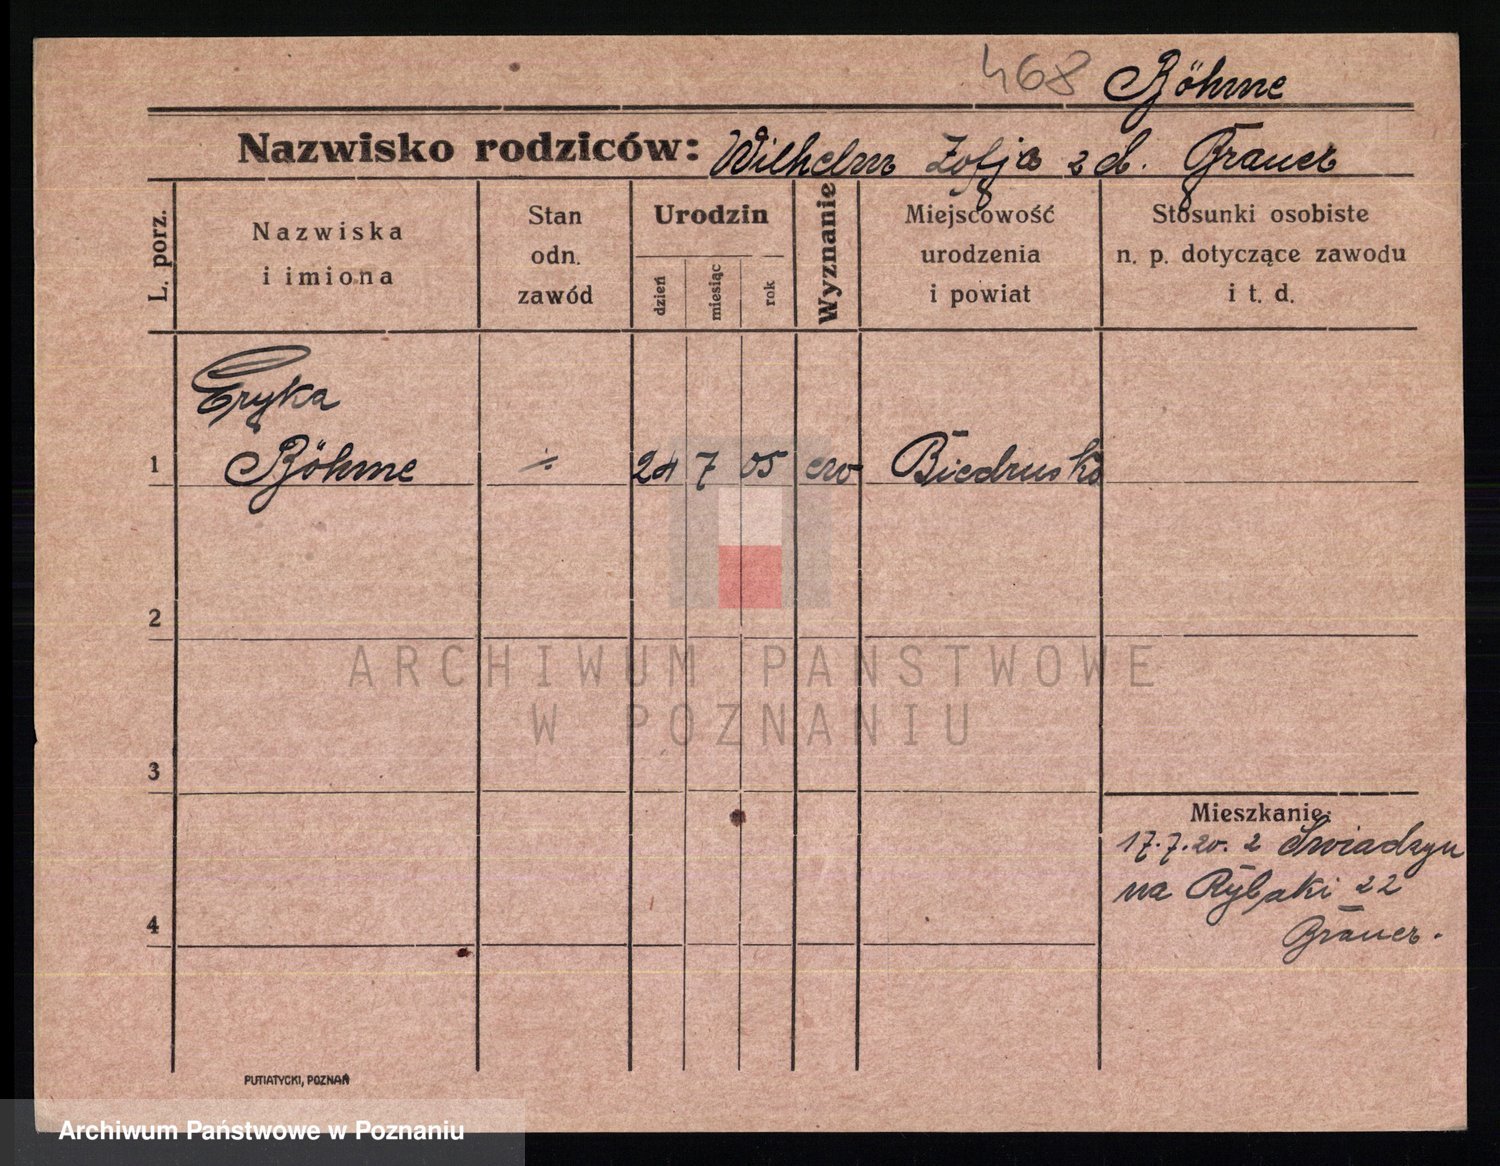 468 Böhme
Nazwisko rodziców: Wilhelm Zofja z d. Grauer
L. porz.
Nazwiska
i imiona
Stan
odn.
zawód
Urodzin
dzień
miesiąc
rok
Wyznanie
Miejscowość
urodzenia
i powiat
Stosunki osobiste
n. p. dotyczące zawodu
i t. d.
Eryka
1 Böhme 24 7 05 ew Biedrusko
2
ARCHIWUM PAŃSTWOWE
W POZNANIU
3
Mieszkanie:
17.7.20. z
na Rybaki 22
4
Grauer.
PUTIATYCKI, POZNAŃ
Archiwum Państwowe w Poznaniu